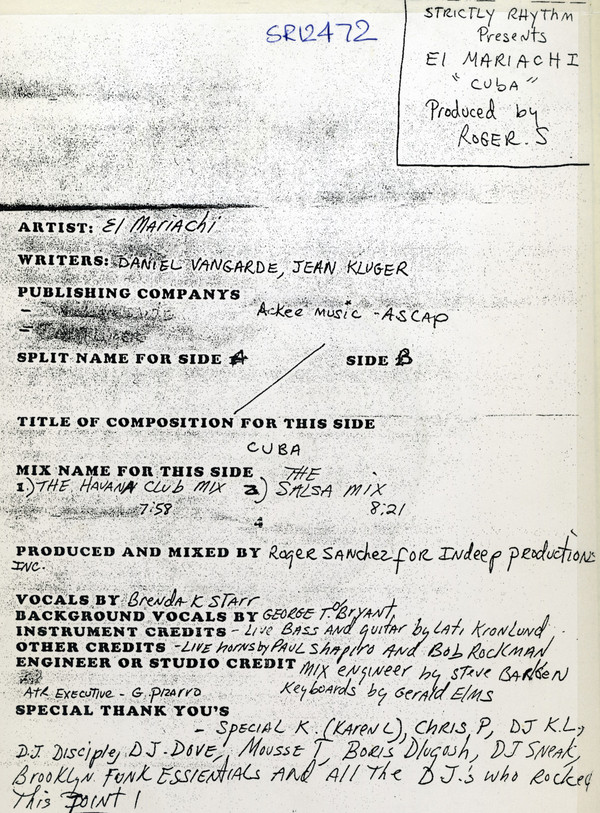 SR12472
STRICTLY RHYTHM
Presents
El MARIACHI
"CUBA"
Produced by
ROGER. S
ARTIST: El Mariachi
WRITERS: DANIEL VANGARDE, JEAN KLUGER
PUBLISHING COMPANYS
- Ackee music - ASCAP
-
SPLIT NAME FOR SIDE A SIDE B
TITLE OF COMPOSITION FOR THIS SIDE
CUBA
MIX NAME FOR THIS SIDE THE
1.) THE HAVANA Club MIX 2) SALSA MIX
7:58 8:21
PRODUCED AND MIXED BY Roger SANchez for Indeep productions
INC.
VOCALS BY Brenda K Starr
BACKGROUND VOCALS BY GEORGE T. O'Bryant,
INSTRUMENT CREDITS - Live Bass And guitar by Lati Kronlund,
OTHER CREDITS - Live horns by PAUL Shapiro AND Bob ROCKMAN
ENGINEER OR STUDIO CREDIT MIX engineer by Steve BARKEN
A+R Executive - G. Pizarro Keyboards by Gerald Elms
SPECIAL THANK YOU'S
- Special K. (Karen L), Chris P, DJ K.L,
D.J. Disciple, DJ-DOVE, Mousse T, Boris Dlugosh, DJ Sneak,
Brooklyn Funk ESSIENTIALS And All The D.J.'s who Rocked
This JOINT!